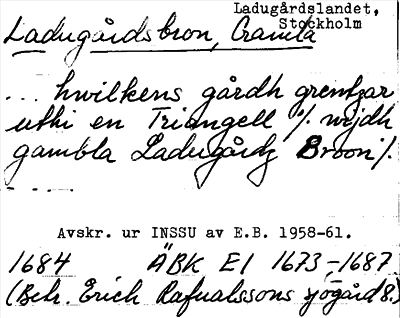 Ladugårdslandet,
Stockholm
Ladugårdsbron, Gamla
... hwilkens gårdh grentzar
uthi en Triangell %. wijdh
gambla Ladugårdz Broon %.
- - - - -
Avskr. ur INSSU av E.B. 1958-61.
1684 ÄBK E1 1673-1687
(Beh. Erich Rafualssons